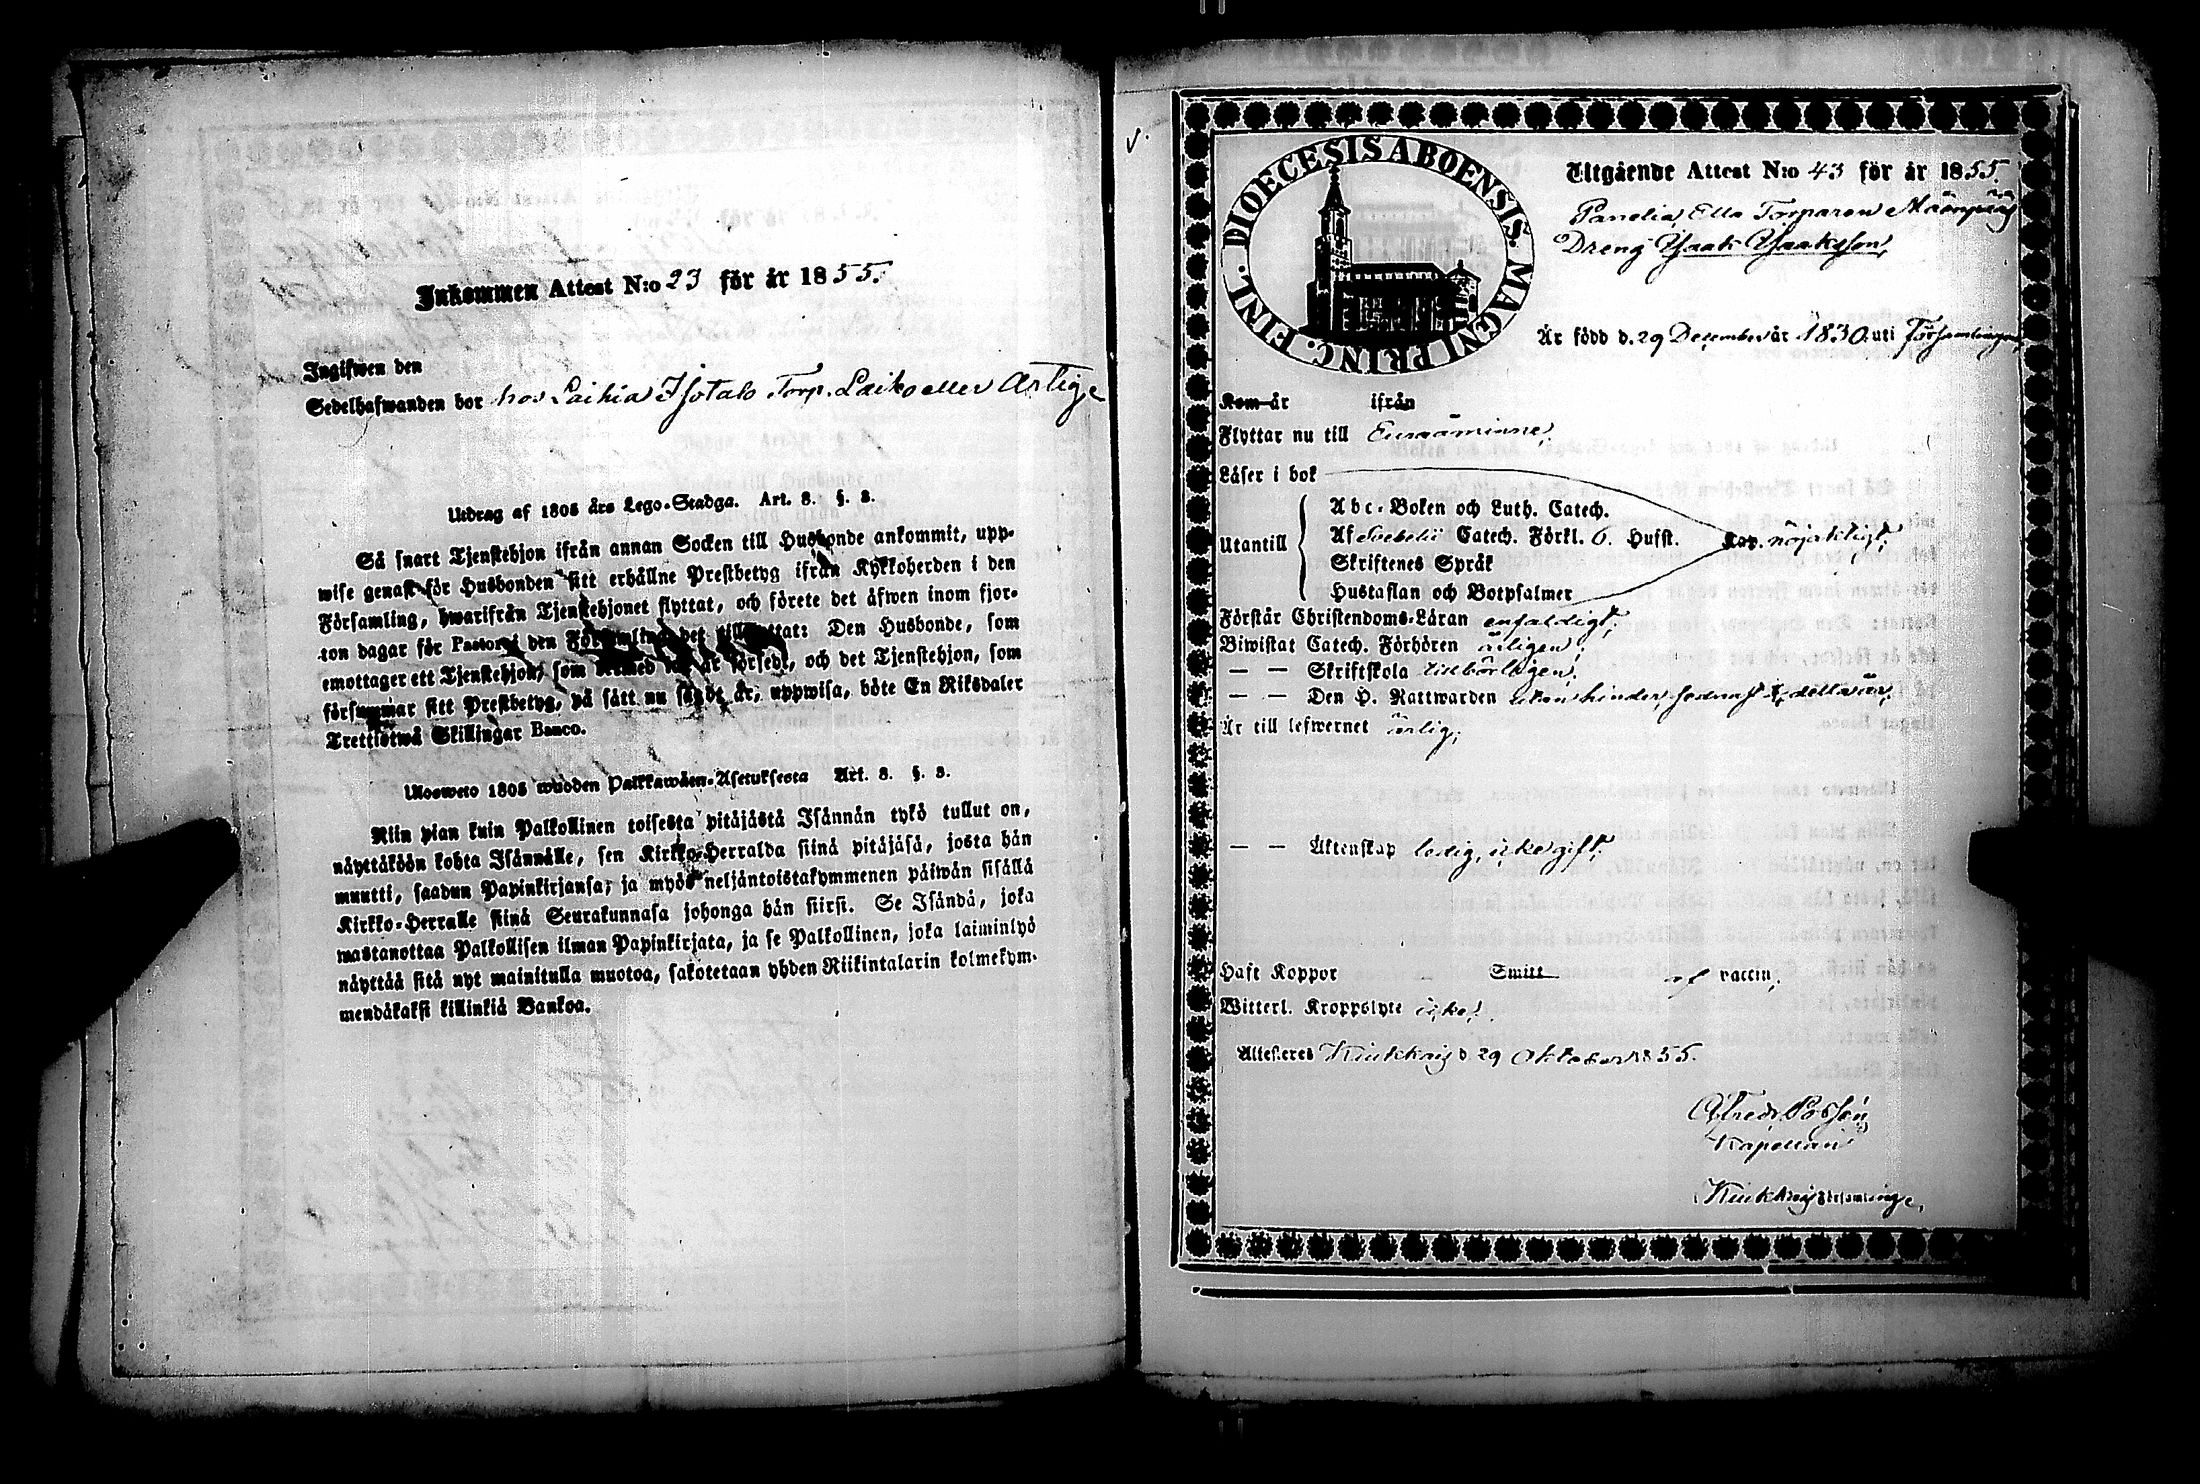 Inkommen Attest N:o 23 för år 1855.
Ingifwen den
Sedelhafwanden bor hos Laihia Isotalo Torp. Laiko eller Artige
Utdrag af 1805 års Lego-Stadga. Art. 8. §. 3.
Så snart Tjenstehjon ifrån annan Socken till Husbonde ankommit, upp-
wise genast för Husbonden sitt erhållne Prestbetyg ifrån Kyrkoherden i den
Församling, hwarifrån Tjenstehjonet flyttat, och förete det äfwen inom fjor-
ton dagar för Pastor i den Församling det tillflyttat: Den Husbonde, som
emottager ett Tjenstehjon, som icke med är försedt, och det Tjenstehjon, som
försummar sitt Prestbetyg, på sätt nu sagdt är, uppwisa, böte En Riksdaler
Trettiotwå Skillingar Banco.
Ulosweto 1805 wuoden Palkkawäen-Asetuksesta Art. 8. §. 3.
Niin pian kuin Palkollinen toisesta pitäjästä Isännän tykö tullut on,
näyttäköön kohta Isännälle, sen Kirkko-Herralda siinä pitäjäsä, josta hän
muutti, saadun Papinkirjansa; ja myös neljäntoistakymmenen päiwän sisällä
Kirkko-Herralle siinä Seurakunnasa johonga hän siirsi. Se Isändä, joka
wastanottaa Palkollisen ilman Papinkirjata, ja se Palkollinen, joka laiminlyö
näyttää sitä nyt mainitulla muotoa, sakotetaan yhden Riikintalarin kolmekym-
mendäkaksi killinkiä Bankoa.
DIOECESIS ABOENSIS. MAGNI PRINC. FINL.
Utgående Attest N:o 43 för år 1855.
Panelia, Ella Torparen Mäenpää
Dreng Isaak Isaaksson,
Är född d. 29 December år 1830. uti Församlingen,
Kom år ifrån
Flyttar nu till Euraåminne,
Läser i bok
Utantill
Abc-Boken och Luth. Catech.
Af Svebelii Catech. Förkl. 6. Hufst. Cap. nöjaktigt;
Skriftenes Språk
Hustaflan och Botpsalmer
Förstår Christendoms-Läran enfaldigt;
Biwistat Catech. Förhören årligen;
— — Skriftskola tillbörligen;
— — Den H. Nattwarden utan hinder, sednast i detta år;
Är till lefwernet ärlig;
— — Äktenskap ledig, icke gift;
Haft Koppor - Smitt af vaccin;
Witterl. Kroppslyte icke.
Attesteres Kiukkais d 29 Oktober 1855.
Kapellan
Kiukkais Församling,